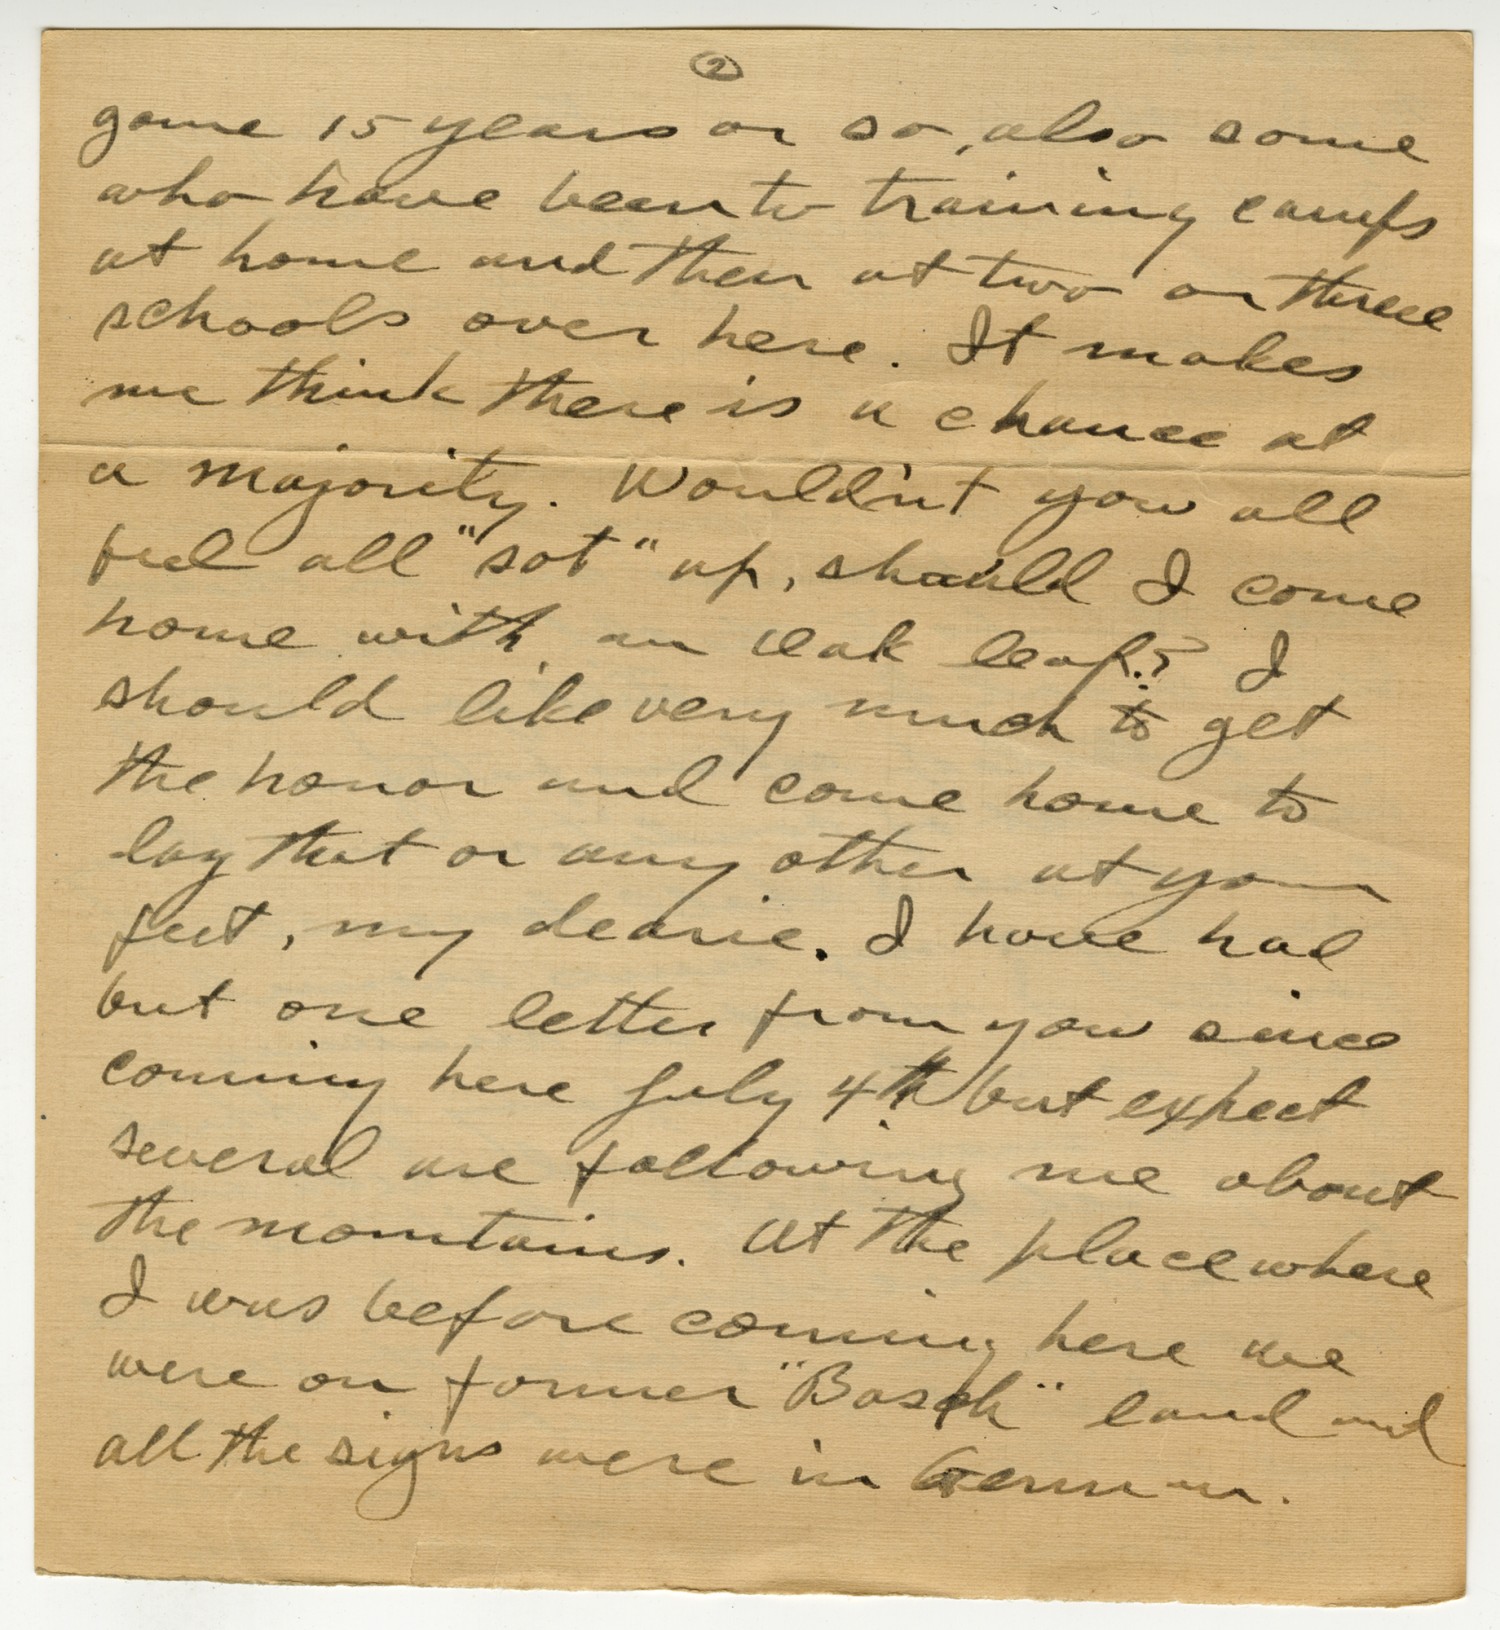 2
game 15 years or so, also some
who have been to training camps
at home and then at two or three
schools over here. It makes
me think there is a chance at
a majority. Wouldn't you all
feel all "sot" up, should I come
home with an oak leaf.? I
should like very much to get
the honor and come home to
lay that or any other at your
feet, my dearie. I have had
but one letter from you since
coming here July 4th but expect
several are following me about
the mountains. At the place where
I was before coming here we
were on former "Bosch" land and
all the signs were in German.